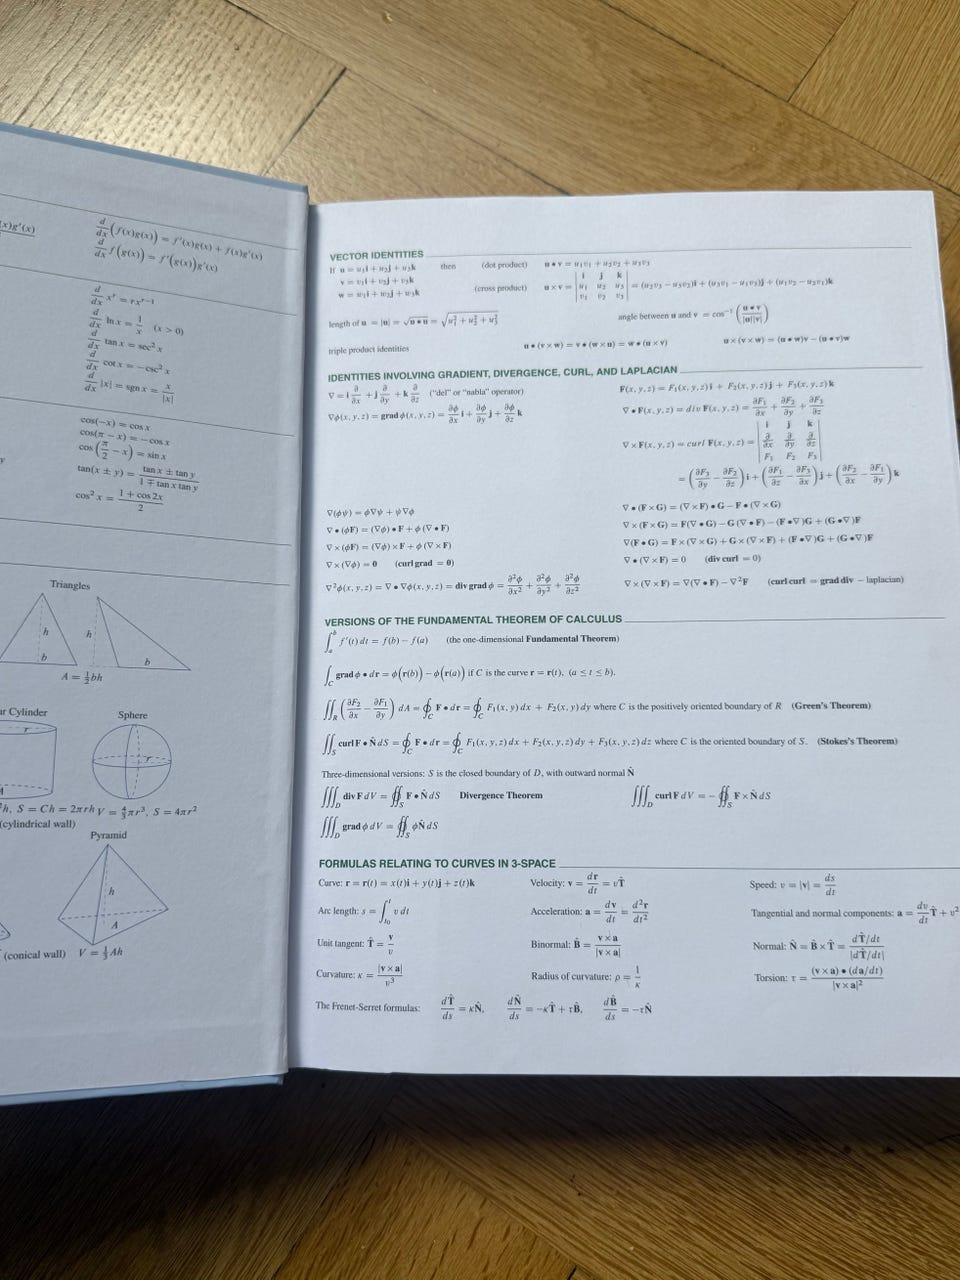 (x)g′(x)
d/dx (f(x)g(x)) = f′(x)g(x) + f(x)g′(x)
d/dx f(g(x)) = f′(g(x))g′(x)
d/dx x^r = rx^(r−1)
d/dx ln x = 1/x (x > 0)
d/dx tan x = sec² x
d/dx cot x = −csc² x
d/dx |x| = sgn x = x/|x|
cos(−x) = cos x
cos(π − x) = −cos x
cos(π/2 − x) = sin x
y
tan(x ± y) = (tan x ± tan y)/(1 ∓ tan x tan y)
cos² x = (1 + cos 2x)/2
Triangles
h h
b b
A = ½bh
r Cylinder Sphere
r r
²h, S = Ch = 2πrh V = 4/3 πr³, S = 4πr²
(cylindrical wall)
Pyramid
h
A
(conical wall) V = ⅓Ah
VECTOR IDENTITIES
If u = u₁i + u₂j + u₃k then (dot product) u • v = u₁v₁ + u₂v₂ + u₃v₃
v = v₁i + v₂j + v₃k
w = w₁i + w₂j + w₃k (cross product) u × v = | i j k ; u₁ u₂ u₃ ; v₁ v₂ v₃ | = (u₂v₃ − u₃v₂)i + (u₃v₁ − u₁v₃)j + (u₁v₂ − u₂v₁)k
length of u = |u| = √(u • u) = √(u₁² + u₂² + u₃²) angle between u and v = cos⁻¹ (u • v / |u||v|)
triple product identities u • (v × w) = v • (w × u) = w • (u × v) u × (v × w) = (u • w)v − (u • v)w
IDENTITIES INVOLVING GRADIENT, DIVERGENCE, CURL, AND LAPLACIAN
∇ = i ∂/∂x + j ∂/∂y + k ∂/∂z ("del" or "nabla" operator) F(x, y, z) = F₁(x, y, z)i + F₂(x, y, z)j + F₃(x, y, z)k
∇φ(x, y, z) = grad φ(x, y, z) = ∂φ/∂x i + ∂φ/∂y j + ∂φ/∂z k ∇ • F(x, y, z) = div F(x, y, z) = ∂F₁/∂x + ∂F₂/∂y + ∂F₃/∂z
∇ × F(x, y, z) = curl F(x, y, z) = | i j k ; ∂/∂x ∂/∂y ∂/∂z ; F₁ F₂ F₃ |
= (∂F₃/∂y − ∂F₂/∂z)i + (∂F₁/∂z − ∂F₃/∂x)j + (∂F₂/∂x − ∂F₁/∂y)k
∇(φψ) = φ∇ψ + ψ∇φ ∇ • (F × G) = (∇ × F) • G − F • (∇ × G)
∇ • (φF) = (∇φ) • F + φ(∇ • F) ∇ × (F × G) = F(∇ • G) − G(∇ • F) − (F • ∇)G + (G • ∇)F
∇ × (φF) = (∇φ) × F + φ(∇ × F) ∇(F • G) = F × (∇ × G) + G × (∇ × F) + (F • ∇)G + (G • ∇)F
∇ × (∇φ) = 0 (curl grad = 0) ∇ • (∇ × F) = 0 (div curl = 0)
∇²φ(x, y, z) = ∇ • ∇φ(x, y, z) = div grad φ = ∂²φ/∂x² + ∂²φ/∂y² + ∂²φ/∂z² ∇ × (∇ × F) = ∇(∇ • F) − ∇²F (curl curl = grad div − laplacian)
VERSIONS OF THE FUNDAMENTAL THEOREM OF CALCULUS
∫ₐᵇ f′(t) dt = f(b) − f(a) (the one-dimensional Fundamental Theorem)
∫_C grad φ • dr = φ(r(b)) − φ(r(a)) if C is the curve r = r(t), (a ≤ t ≤ b).
∬_R (∂F₂/∂x − ∂F₁/∂y) dA = ∮_C F • dr = ∮_C F₁(x, y) dx + F₂(x, y) dy where C is the positively oriented boundary of R (Green's Theorem)
∬_S curl F • N̂ dS = ∮_C F • dr = ∮_C F₁(x, y, z) dx + F₂(x, y, z) dy + F₃(x, y, z) dz where C is the oriented boundary of S. (Stokes's Theorem)
Three-dimensional versions: S is the closed boundary of D, with outward normal N̂
∭_D div F dV = ∯_S F • N̂ dS Divergence Theorem ∭_D curl F dV = − ∯_S F × N̂ dS
∭_D grad φ dV = ∯_S φN̂ dS
FORMULAS RELATING TO CURVES IN 3-SPACE
Curve: r = r(t) = x(t)i + y(t)j + z(t)k Velocity: v = dr/dt = vT̂ Speed: v = |v| = ds/dt
Arc length: s = ∫_{t₀}^{t} v dt Acceleration: a = dv/dt = d²r/dt² Tangential and normal components: a = dv/dt T̂ + v²
Unit tangent: T̂ = v/v Binormal: B̂ = (v × a)/|v × a| Normal: N̂ = B̂ × T̂ = (dT̂/dt)/|dT̂/dt|
Curvature: κ = |v × a|/v³ Radius of curvature: ρ = 1/κ Torsion: τ = (v × a) • (da/dt)/|v × a|²
The Frenet-Serret formulas: dT̂/ds = κN̂, dN̂/ds = −κT̂ + τB̂, dB̂/ds = −τN̂